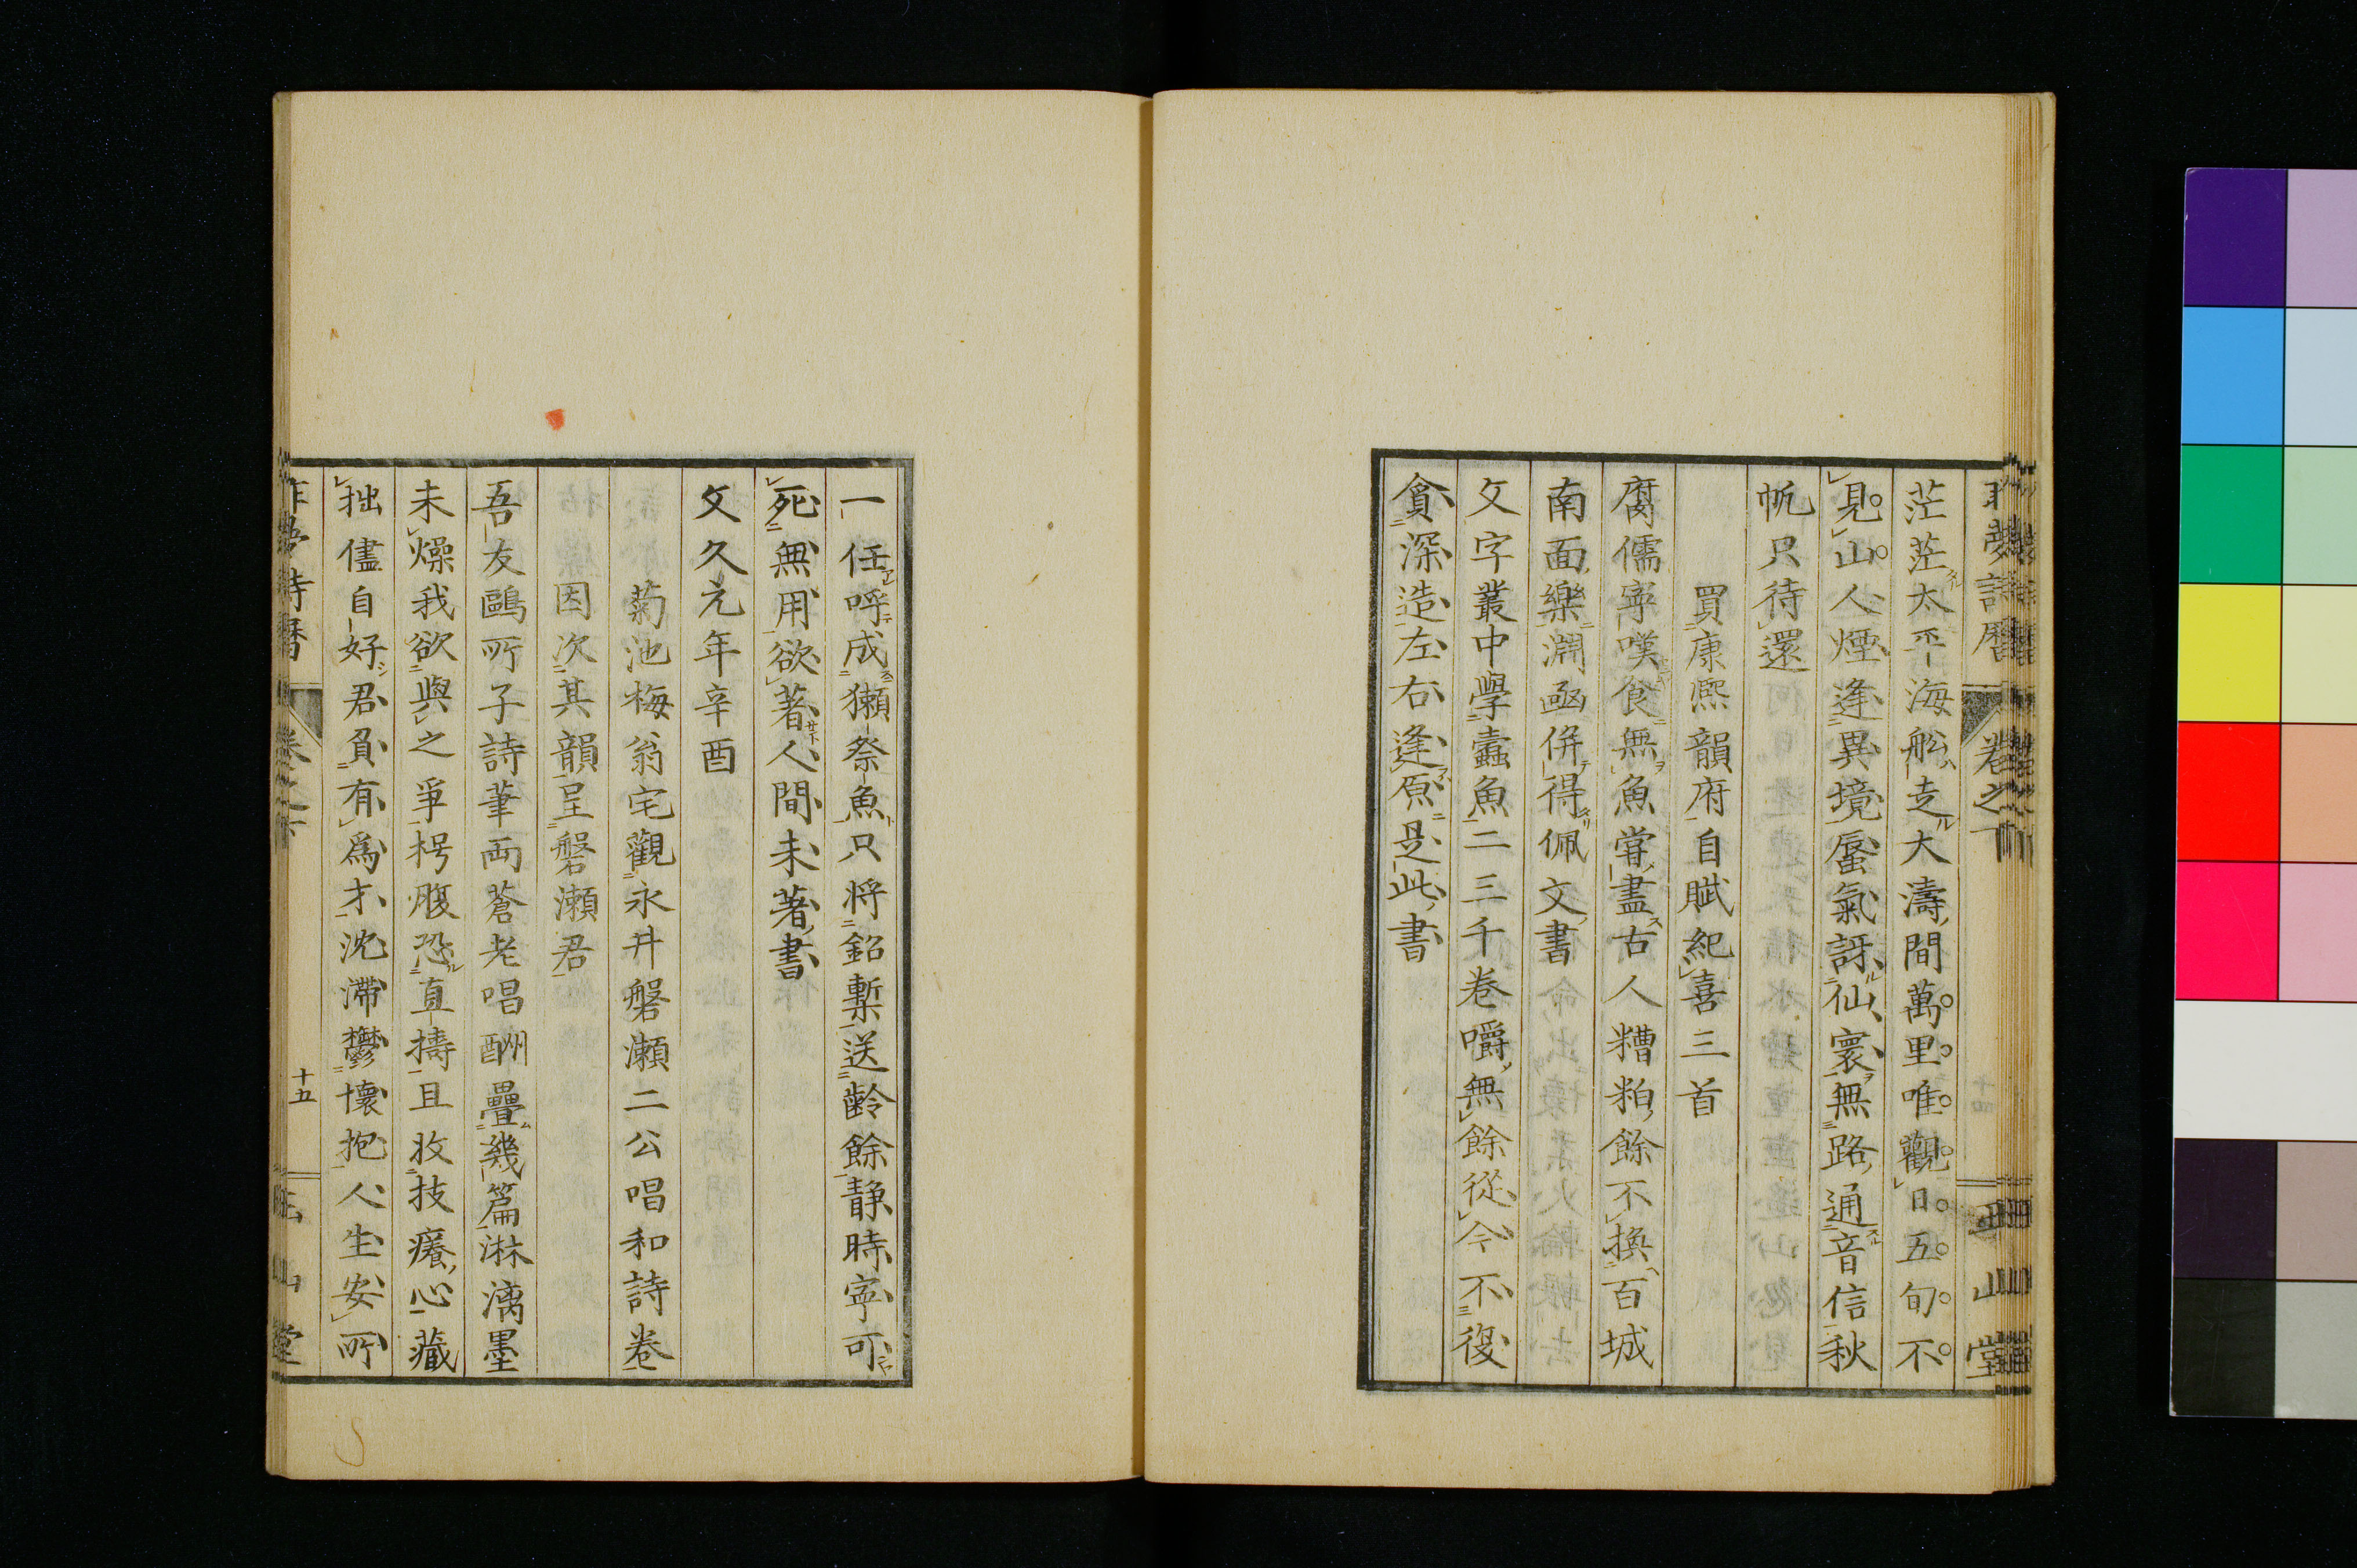 茫茫太平海舩走大濤間萬里唯觀日五旬不
見山人煙逢異境蜃氣訝仙寰無路通音信秋
帆只待還
買康熙韻府自賦紀喜三首
腐儒寧嘆食無魚嘗盡古人糟粕餘不換百城
南面樂淵函併得佩文書
文字叢中學蠹魚二三千卷嚼無餘從今不復
貪深造左右逢原是此書
一任呼成獺祭魚只將鉛槧送齡餘静時寧可
死無用欲著人間未著書
文久元年辛酉
菊池梅翁宅觀永井磐瀬二公唱和詩卷
因次其韻呈磐瀬君
吾友鷗所子詩筆両蒼老唱酬疊幾篇淋漓墨
未燥我欲與之爭枵腹恐直擣且收技癢心藏
拙儘自好君負有爲才沈滯鬱懷抱人生安所
卷之下
十五
山堂